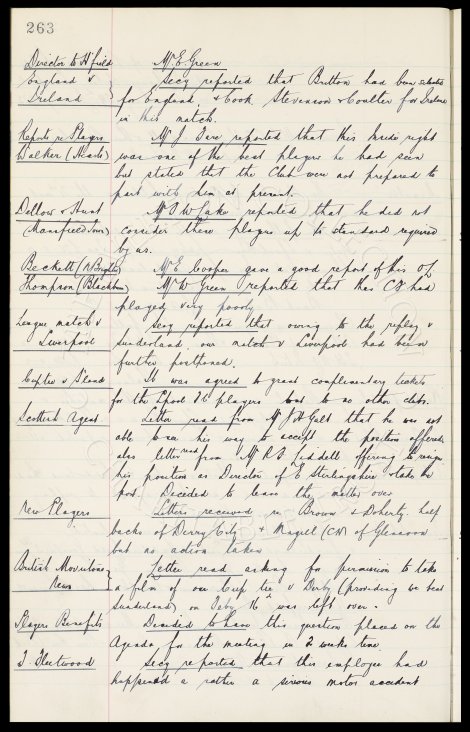 263
Director to H'field Mr E. Green
England v Secy reported that Britton had been selected
Ireland for England, & Cook Stevenson & Coulter for Ireland
in this match.
Reports re Players Mr J. Sere reported that this inside right
Walker (Hearts) was one of the best players he had seen
but stated that the Club were not prepared to
part with him at present.
Dellow & Hunt Mr O W Lake reported that he did not
(Mansfield Town) consider these players up to standard required
by us.
Beckett (N. Brighton) Mr E Cooper gave a good report of this O/L
Thompson (Blackburn) Mr W Green reported that this CH had
played very poorly
League match v Secy reported that owing to the replay v
Liverpool Sunderland our match v Liverpool had been
further postponed.
Cuptie v S'land It was agreed to grant complimentary tickets
for the L'pool F.C. players but to no other clubs.
Scottish Agent Letter read from Mr J H Galt that he was not
able to see his way to accept the position offered
also letter read from Mr R S Liddell offering to resign
his position as Director of E Stirlingshire & take the
post. Decided to leave the matter over
New Players Letters received re Brown & Doherty, half
backs of Derry City & Magill (CH) of Glenavon
but no action taken
British Movietone Letter read asking for permission to take
News a film of our Cup tie v Derby (providing we beat
Sunderland) on Feby 16th was left over.
Players Benefits Decided to have this question placed on the
Agenda for the meeting in 2 weeks time.
T. Fleetwood Secy reported that this employee had
happened a rather a serious motor accident